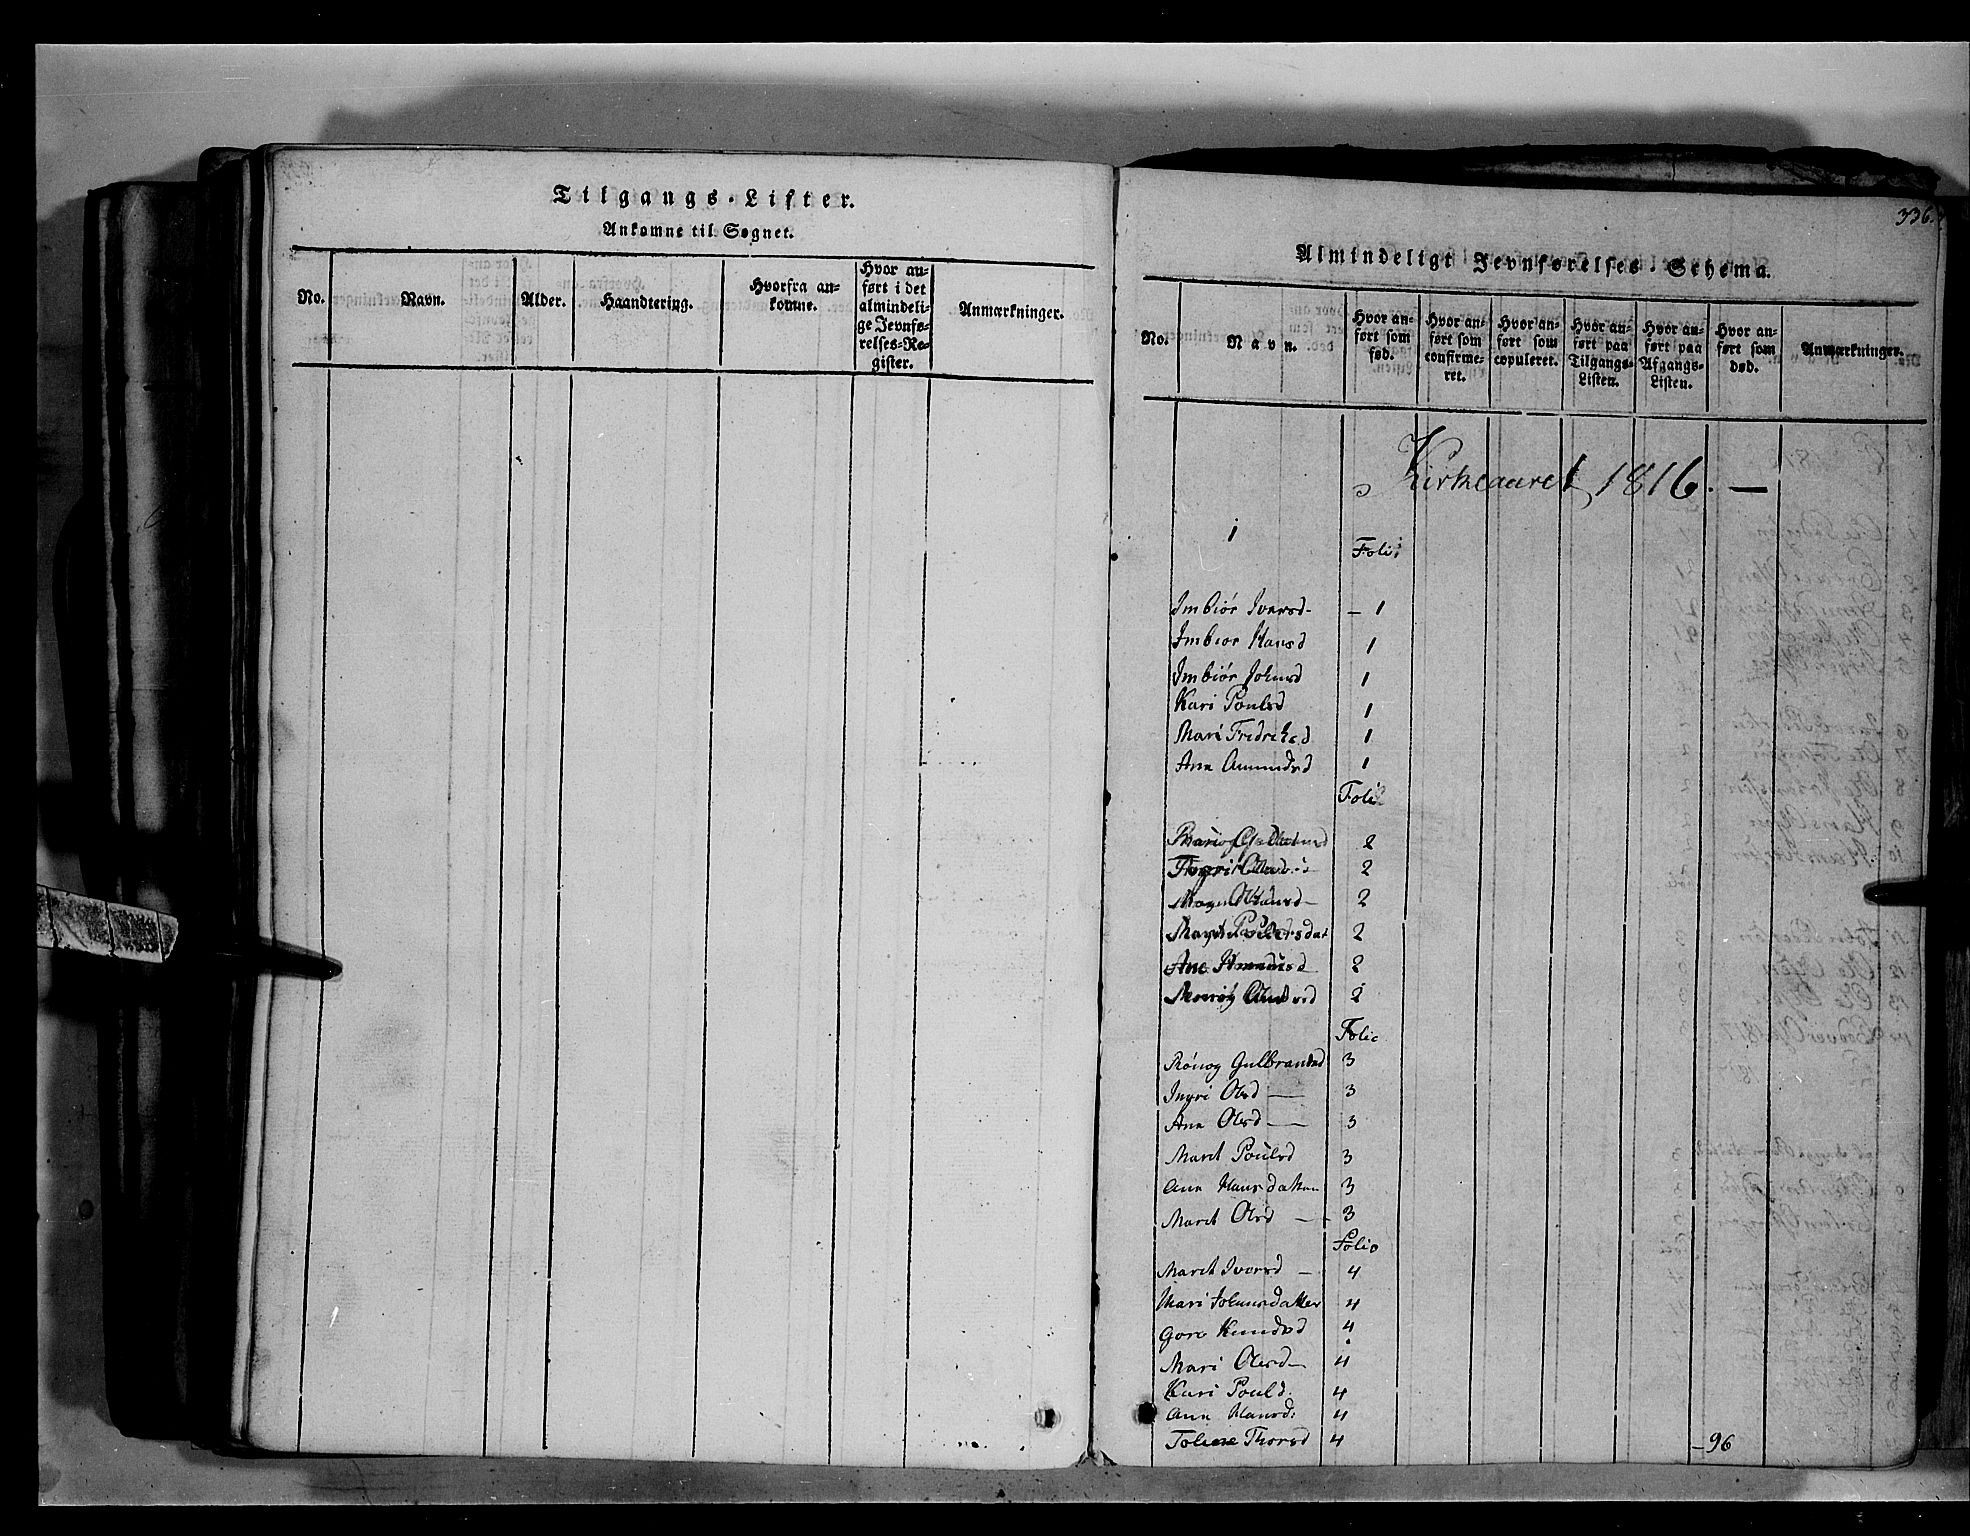 Tilgangs-Lister.
Ankomne til Sognet.
No. Navn. Alder. Haandtering. Hvorfra ankomne. Hvor anført i det almindelige Jevnførelses-Register. Anmærkninger.
336.
Almindeligt Jevnførelses-Schema.
No. Navn. Hvor anført som fød. Hvor anført som confirmeret. Hvor anført som copuleret. Hvor anført paa Tilgangs-Listen. Hvor anført paa Afgangs-Listen. Hvor anført som død. Anmærkninger.
Kirkeaaret 1816. —
1
Folio
Imbiør Iversd- — 1
Imbiør Hansd 1
Imbiør Johnsd 1
Kari Poulsd 1
Mari Fredriksd 1
Ane Amundsd 1
Folio
2
2
2
Pedersdat 2
Ane 2
2
Folio
Rönog Gulbrandsd 3
Ingri Olsd — 3
Ane Olsd — 3
Marit Poulsd 3
Ane Hansdatter 3
Marit Olsd — 3
Folio
Marit Iversd — 4
Mari Johnsdatter 4
Goro Knudsd 4
Mari Olesd- 4
Kari Pouls d. 4
Ane Hansd: 4
Tolene Thorsd 4 — 96